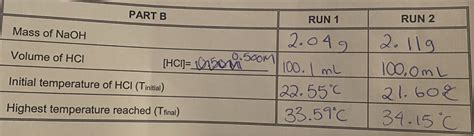 PART B RUN 1 RUN 2
Mass of NaOH 2.04g 2.11g
Volume of HCl [HCl]= 0.500M 100.1 mL 100.0mL
Initial temperature of HCl (Tinitial) 22.55°C 21.60°C
Highest temperature reached (Tfinal) 33.59°C 34.15°C